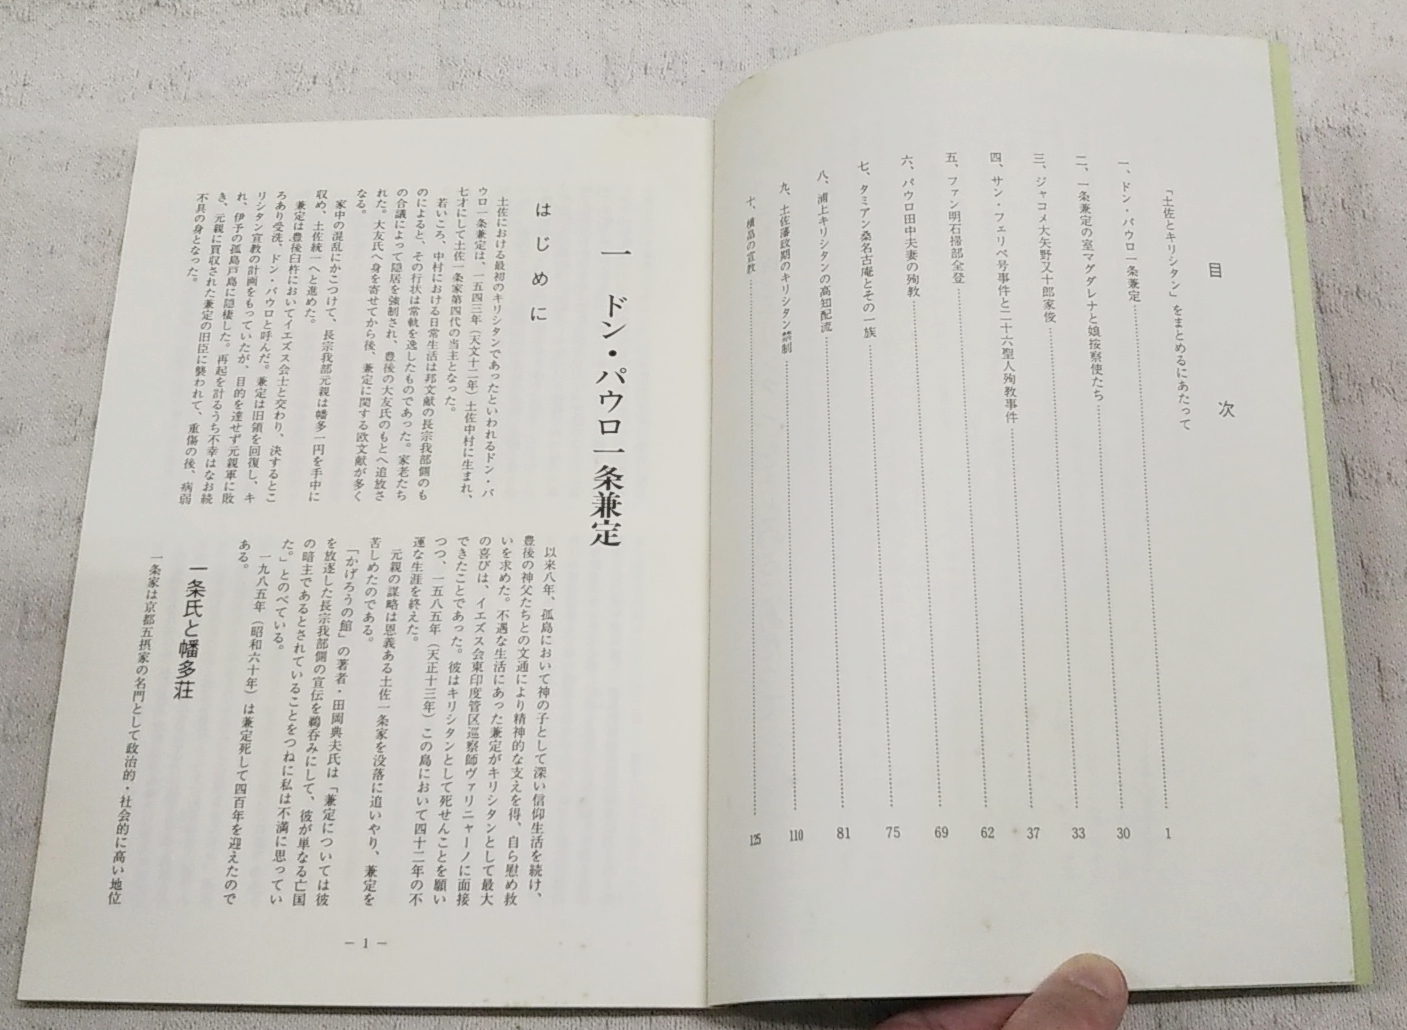 目次
「土佐とキリシタン」をまとめるにあたって
一、ドン・パウロ一条兼定 1
二、一条兼定の室マグダレナと娘按察使たち 30
三、ジャコメ大矢野又十郎家俊 33
四、サン・フェリペ号事件と二十六聖人殉教事件 37
五、ファン明石掃部全登 62
六、パウロ田中夫妻の殉教 69
七、タミアン桑名古庵とその一族 75
八、浦上キリシタンの高知配流 81
九、土佐藩政期のキリシタン禁制 110
十、横島の宣教 125
一 ドン・パウロ一条兼定
はじめに
土佐における最初のキリシタンであったといわれるドン・パ
ウロ一条兼定は、一五四三年（天文十二年）土佐中村に生まれ、
七才にして土佐一条家第四代の当主となった。
若いころ、中村における日常生活は邦文献の長宗我部側のも
のによると、その行状は常軌を逸したものであった。家老たち
の合議によって隠居を強制され、豊後の大友氏のもとへ追放さ
れた。大友氏へ身を寄せてから後、兼定に関する欧文献が多く
なる。
家中の混乱にかこつけて、長宗我部元親は幡多一円を手中に
収め、土佐統一へと進めた。
兼定は豊後臼杵においてイエズス会士と交わり、決するとこ
ろあり受洗、ドン・パウロと呼んだ。兼定は旧領を回復し、キ
リシタン宣教の計画をもっていたが、目的を達せず元親軍に敗
れ、伊予の孤島戸島に隠棲した。再起を計るうち不幸はなお続
き、元親に買収された兼定の旧臣に襲われて、重傷の後、病弱
不具の身となった。
以来八年、孤島において神の子として深い信仰生活を続け、
豊後の神父たちとの文通により精神的な支えを得、自ら慰め救
いを求めた。不遇な生活にあった兼定がキリシタンとして最大
の喜びは、イエズス会東印度管区巡察師ヴァリニャーノに面接
できたことであった。彼はキリシタンとして死せんことを願い
つつ、一五八五年（天正十三年）この島において四十二年の不
運な生涯を終えた。
元親の謀略は恩義ある土佐一条家を没落に追いやり、兼定を
苦しめたのである。
「かげろうの館」の著者・田岡典夫氏は「兼定については彼
を放逐した長宗我部側の宣伝を鵜呑みにして、彼が単なる亡国
の暗主であるとされていることをつねに私は不満に思ってい
た。」とのべている。
一九八五年（昭和六十年）は兼定死して四百年を迎えたので
ある。
一条氏と幡多荘
一条家は京都五摂家の名門として政治的・社会的に高い地位
― 1 ―